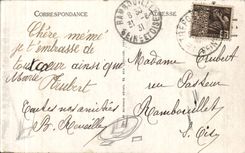 CORRESPONDANCE
ADRESSE
RAMBOUILLET
SEINE ET OISE
Chère mémé
je t'embrasse de
tout cœur ainsi que
Hubert
Toutes nos amitiés
Madame Hubert
rue Pasteur
Rambouillet
S. et O.